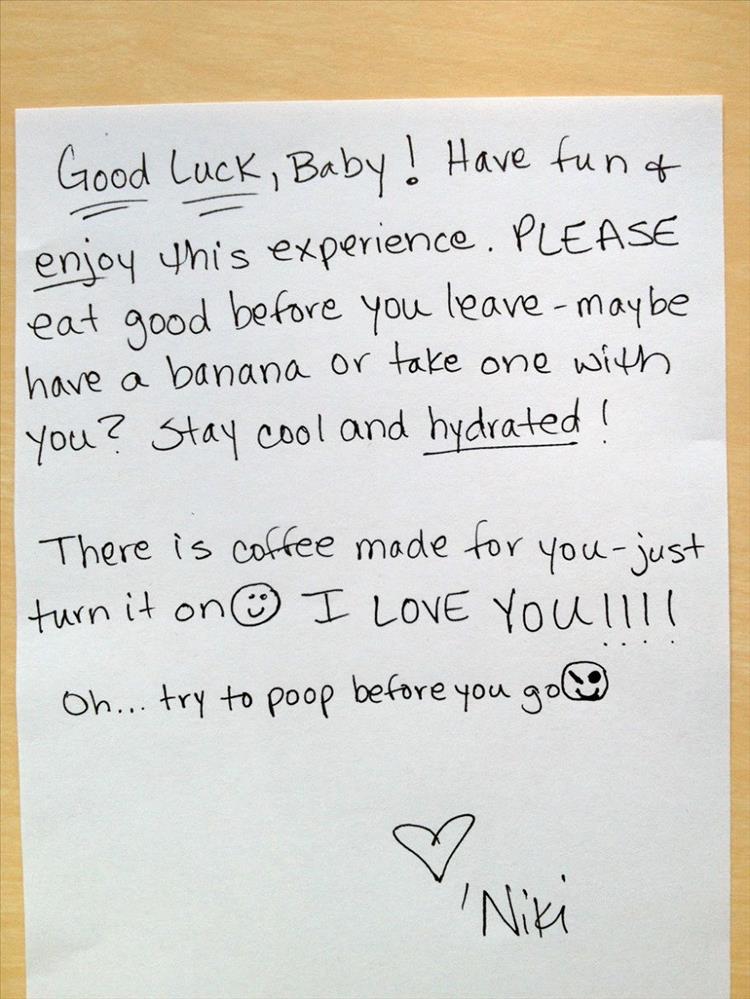 Good Luck, Baby! Have fun &
enjoy this experience. PLEASE
eat good before you leave - maybe
have a banana or take one with
you? Stay cool and hydrated!
There is coffee made for you - just
turn it on☺ I LOVE YOU!!!!
Oh... try to poop before you go😈
♡
'Niki